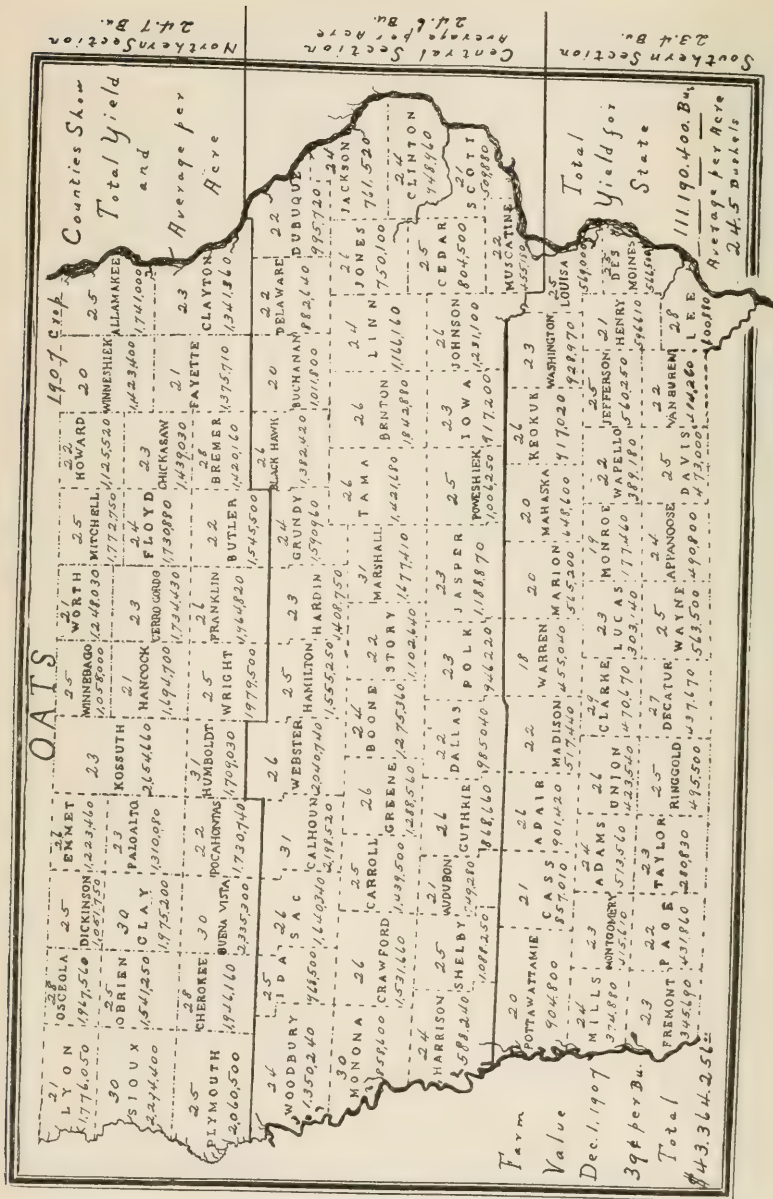 OATS
1907 Crop
Counties Show
Total Yield
and
Average per
Acre
Northern Section
24.7 Bu.
Central Section
Average per Acre
24.6 Bu.
Southern Section
23.4 Bu.
21
LYON
1,776,050
28
OSCEOLA
1,967,560
25
DICKINSON
1,051,750
26
EMMET
1,223,460
23
KOSSUTH
2,154,660
25
WINNEBAGO
1,058,000
21
WORTH
1,248,030
25
MITCHELL
1,772,750
22
HOWARD
1,125,520
20
WINNESHIEK
1,423,400
25
ALLAMAKEE
1,741,000
30
SIOUX
2,294,400
25
OBRIEN
1,541,250
30
CLAY
1,975,200
23
PALOALTO
1,310,080
21
HANCOCK
1,694,700
23
CERRO GORDO
1,734,430
24
FLOYD
1,730,880
23
CHICKASAW
1,439,030
21
FAYETTE
1,375,710
23
CLAYTON
1,341,360
25
PLYMOUTH
2,060,500
28
CHEROKEE
1,946,160
30
BUENA VISTA
2,335,300
22
POCAHONTAS
1,730,740
31
HUMBOLDT
1,709,030
25
WRIGHT
1,979,500
26
FRANKLIN
1,964,820
22
BUTLER
1,545,500
28
BREMER
1,420,160
24
WOODBURY
1,350,240
25
IDA
968,500
26
SAC
1,640,340
31
CALHOUN
2,198,520
26
WEBSTER
2,040,740
25
HAMILTON
1,555,250
23
HARDIN
1,408,750
24
GRUNDY
1,590,960
26
BLACK HAWK
1,382,420
20
BUCHANAN
1,011,800
22
DELAWARE
882,140
22
DUBUQUE
995,720
30
MONONA
858,600
26
CRAWFORD
1,531,660
25
CARROLL
1,439,500
26
GREENE
1,288,560
24
BOONE
1,275,360
22
STORY
1,102,640
31
MARSHALL
1,677,410
26
TAMA
1,421,680
26
BENTON
1,842,880
24
LINN
1,166,160
26
JONES
750,100
24
JACKSON
761,520
24
CLINTON
948,960
24
HARRISON
588,240
25
SHELBY
1,088,250
21
AUDUBON
749,280
26
GUTHRIE
868,660
22
DALLAS
985,040
23
POLK
946,220
23
JASPER
1,188,870
25
POWESHIEK
1,006,250
23
IOWA
917,200
26
JOHNSON
1,231,100
25
CEDAR
804,500
21
SCOTT
509,880
22
MUSCATINE
455,180
20
POTTAWATTAMIE
904,800
21
CASS
857,010
26
ADAIR
901,420
22
MADISON
517,440
18
WARREN
455,040
20
MARION
565,200
20
MAHASKA
648,600
26
KEOKUK
917,020
23
WASHINGTON
928,970
25
LOUISA
569,000
24
MILLS
374,880
23
MONTGOMERY
415,610
24
ADAMS
513,560
26
UNION
423,540
29
CLARKE
470,670
23
LUCAS
303,140
19
MONROE
177,460
22
WAPELLO
389,180
25
JEFFERSON
560,250
21
HENRY
596,610
DES
MOINES
566,500
23
FREMONT
345,690
22
PAGE
431,860
23
TAYLOR
280,830
25
RINGGOLD
495,500
27
DECATUR
437,670
25
WAYNE
563,500
24
APPANOOSE
490,800
25
DAVIS
473,000
22
VAN BUREN
414,260
28
LEE
Farm
Value
Dec. 1, 1907
39¢ per Bu.
Total
$43.364.256
Total
Yield for
State
111.190.400. Bu.
Average per Acre
24.5 Bushels